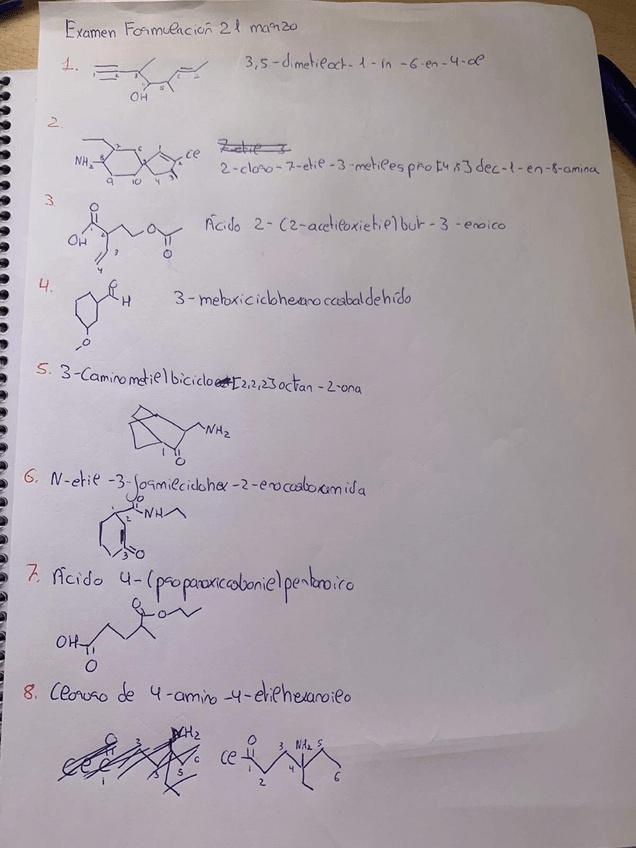 Examen Formulación 21 marzo
1. 3,5-dimetiloct-1-in-6-en-4-ol
OH
2. 7-etil-3
NH2 Cl 2-cloro-7-etil-3-metilespiro[4,5]dec-1-en-8-amina
9 10 4 3
3. Ácido 2-(2-acetiloxietil)but-3-enoico
O OH O O
1 2 3 4
4. 3-metoxiciclohexanocarbaldehído
O H
O
5. 3-(aminometil)biciclo[2,2,2]octan-2-ona
NH2
1 O
6. N-etil-3-formilciclohex-2-enocarboxamida
O
1 2 NH
3 O
7. Ácido 4-(propanoxicarbonil)pentanoico
O O
OH
O
8. Cloruro de 4-amino-4-etilhexanoilo
NH2 O 3 NH2 5
Cl C Cl 1 4
1 2 6